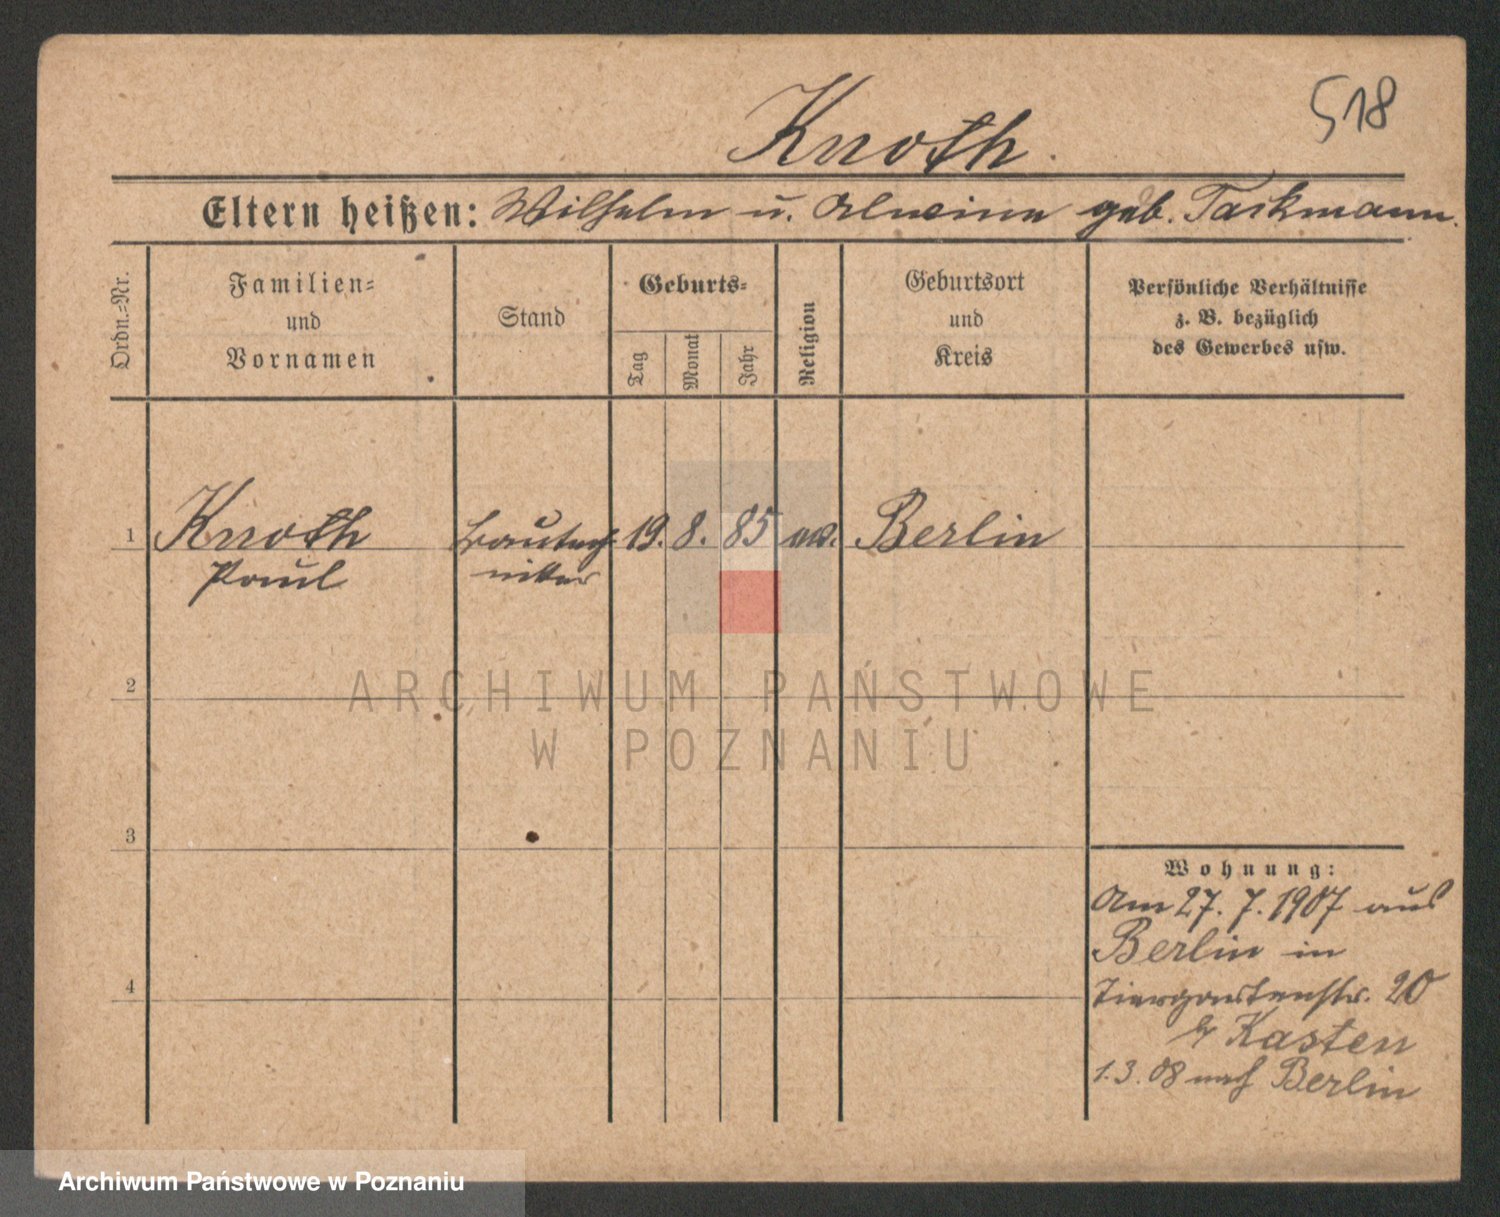 518
Knoth.
Eltern heißen: Wilhelm u. Alwine geb. Tackmann.
Ordn.-Nr.
Familien-
und
Vornamen
Stand
Geburts-
Tag
Monat
Jahr
Religion
Geburtsort
und
Kreis
Persönliche Verhältnisse
z. B. bezüglich
des Gewerbes usw.
1 Knoth Bautech- 19. 8. 85 ev. Berlin
Paul niker
ARCHIWUM PAŃSTWOWE
W POZNANIU
2
3
4
Wohnung:
Am 27. 7. 1907 aus
Berlin in
Tiergartenstr. 20
Kasten
1.3.08 nach Berlin
Archiwum Państwowe w Poznaniu